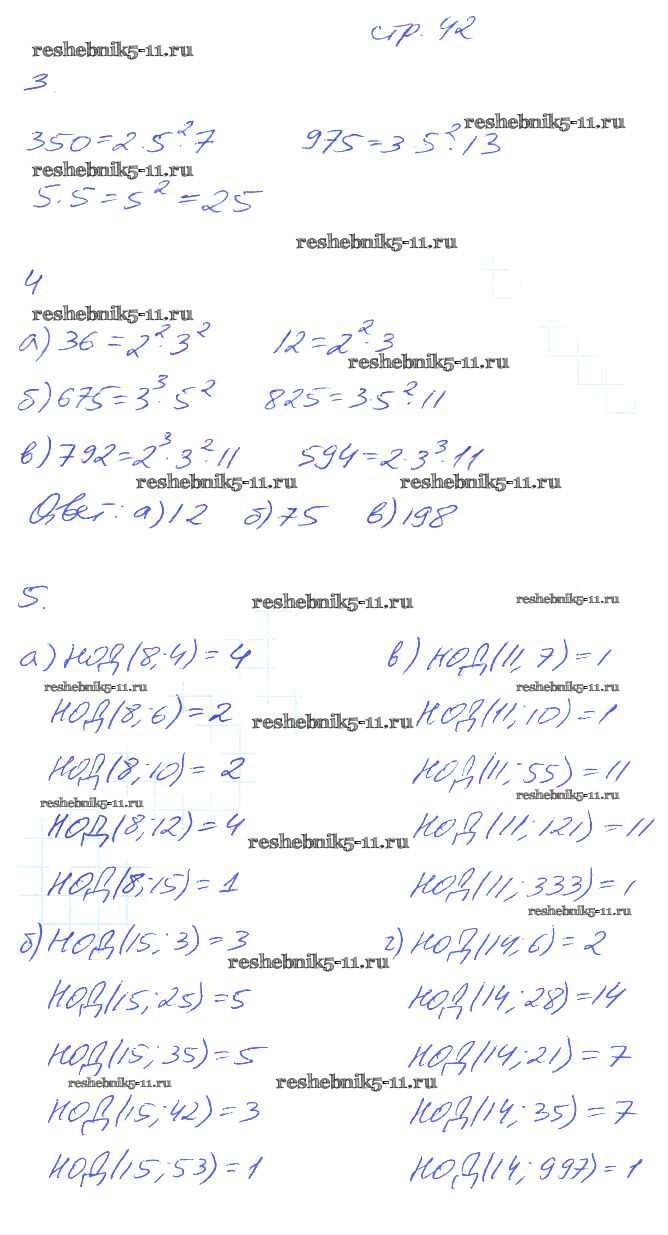 стр. 42
reshebnik5-11.ru
3
reshebnik5-11.ru
350=2·5²·7 975=3·5²·13
reshebnik5-11.ru
5·5=5²=25
reshebnik5-11.ru
4
reshebnik5-11.ru
а) 36=2²·3² 12=2²·3
reshebnik5-11.ru
б) 675=3³·5² 825=3·5²·11
в) 792=2³·3²·11 594=2·3³·11
reshebnik5-11.ru reshebnik5-11.ru
Ответ: а) 12 б) 75 в) 198
5. reshebnik5-11.ru reshebnik5-11.ru
а) НОД(8;4)=4 в) НОД(11;7)=1
reshebnik5-11.ru reshebnik5-11.ru
НОД(8;6)=2 reshebnik5-11.ru НОД(11;10)=1
НОД(8;10)=2 НОД(11;55)=11
reshebnik5-11.ru reshebnik5-11.ru
НОД(8;12)=4 reshebnik5-11.ru НОД(11;121)=11
НОД(8;15)=1 НОД(11;333)=1
reshebnik5-11.ru
б) НОД(15;3)=3 г) НОД(14;6)=2
reshebnik5-11.ru
НОД(15;25)=5 НОД(14;28)=14
НОД(15;35)=5 НОД(14;21)=7
reshebnik5-11.ru reshebnik5-11.ru
НОД(15;42)=3 НОД(14;35)=7
НОД(15;53)=1 НОД(14;997)=1